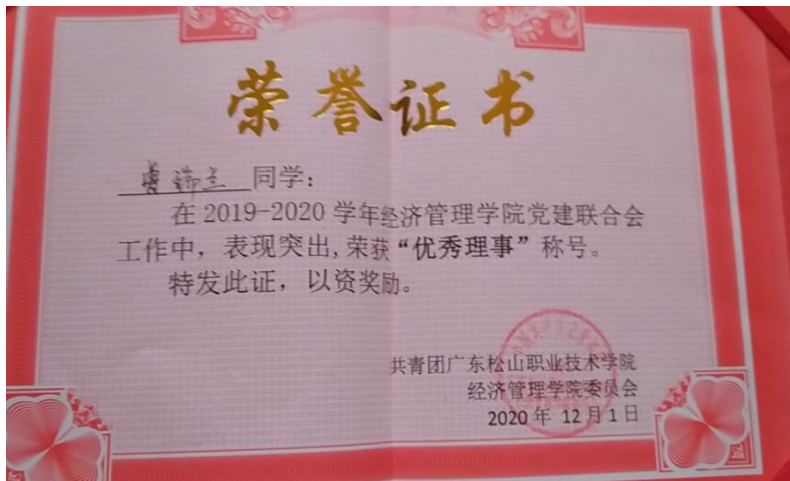 荣誉证书
同学：
在 2019-2020 学年经济管理学院党建联合会
工作中，表现突出,荣获“优秀理事”称号。
特发此证，以资奖励。
共青团广东松山职业技术学院
经济管理学院委员会
2020 年 12 月 1 日